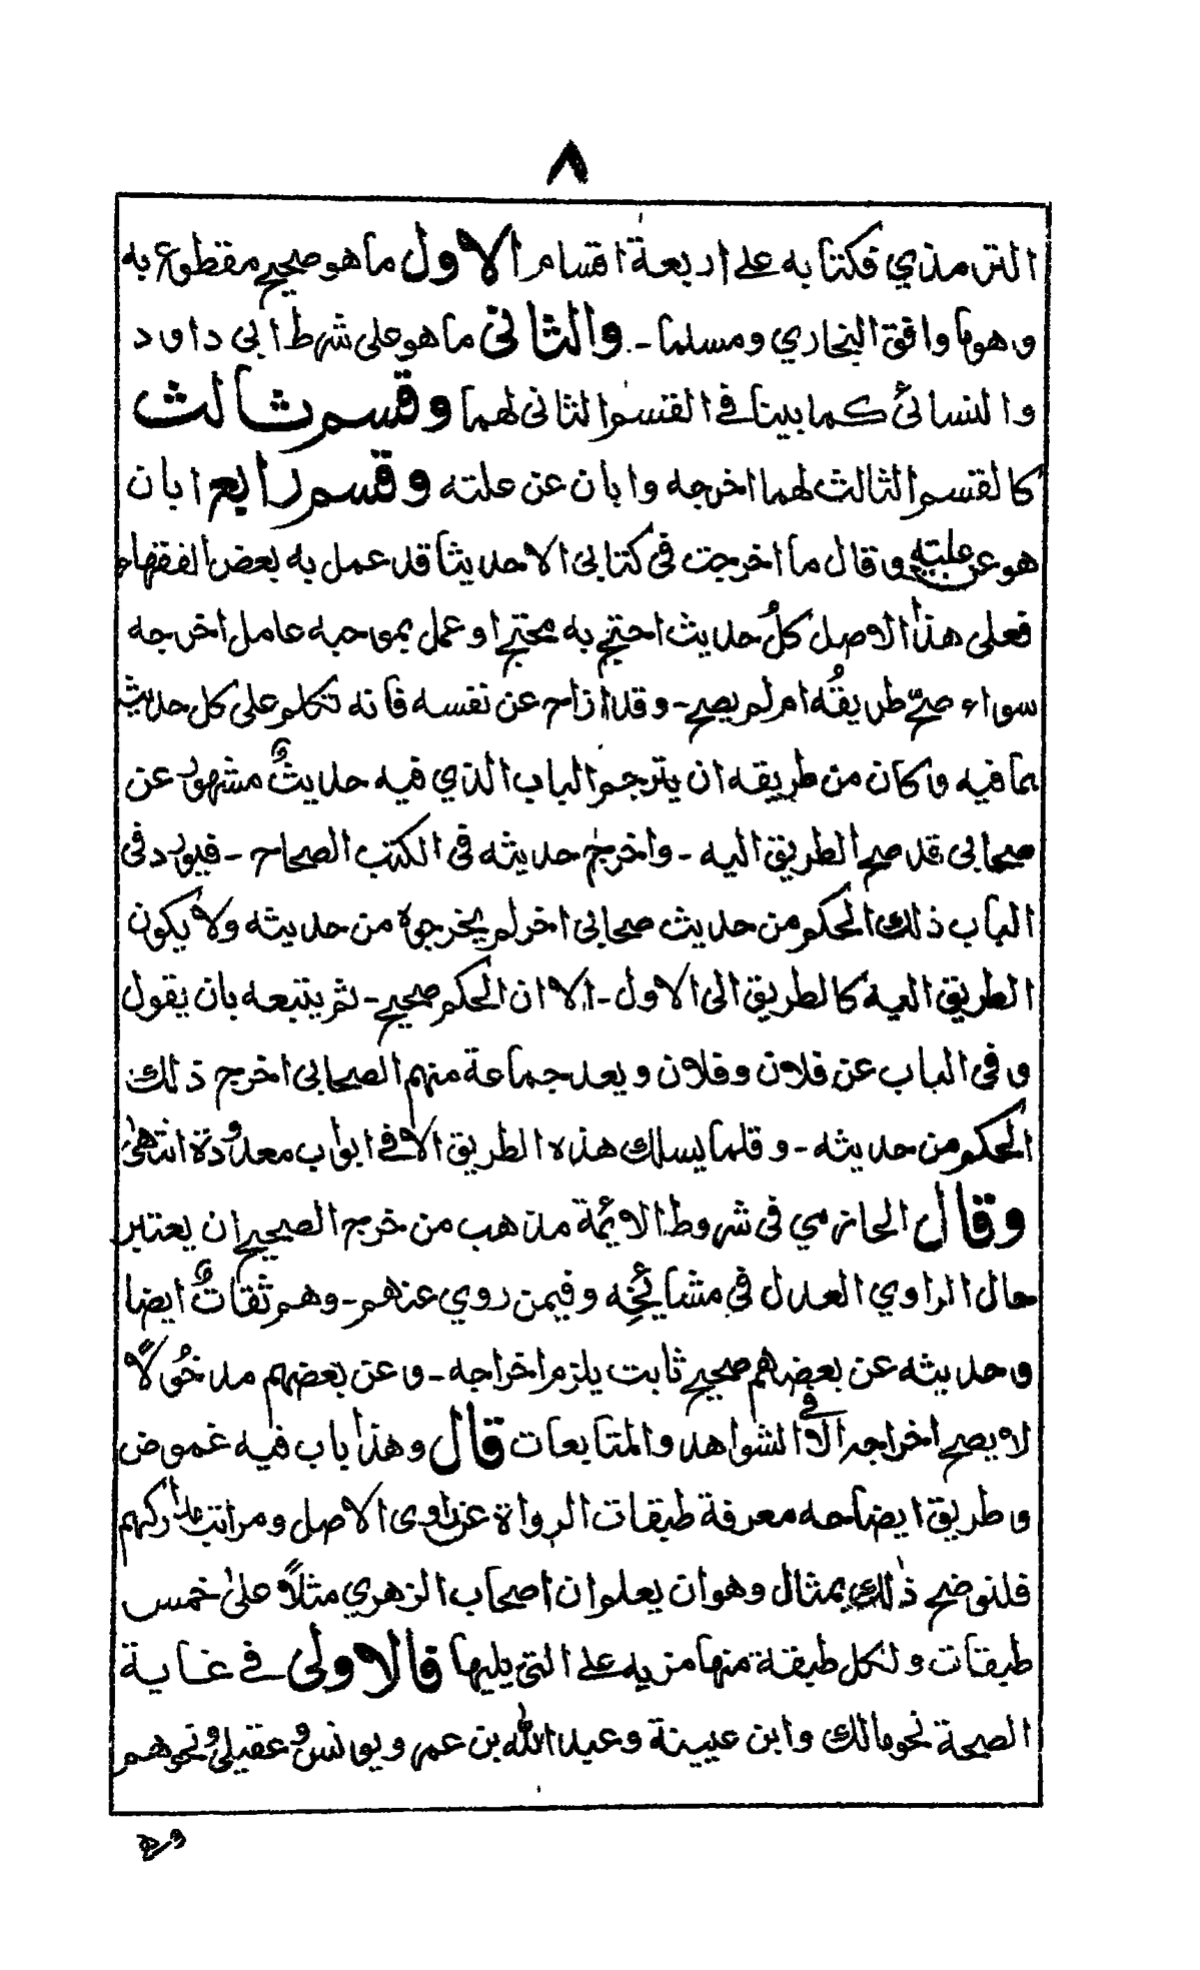 ٨
الترمذي فكتابه على اربعة اقسام الاول ما هو صحيح مقطوع به
وهوما وافق البخاري ومسلما -. والثانى ما هو على شرط ابى داود
والنسائى كما بينا فے القسم الثانى لهما وقسم ثالث
كالقسم الثالث لهما اخرجه وابان عن علته وقسم رابع ابان
هو عن علته وقال ما اخرجت فى كتابى الاحديثا قد عمل به بعض الفقهاء
فعلى هذا الاصل كلُ حديث احتج به محتج اوعمل بموجبه عامل اخرجه
سواء صحّ طريقُه ام لم يصح - وقد ازاح عن نفسه فانه تكلم على كل حديث
بما فيه وكان من طريقه ان يترجم الباب الذي فيه حديثٌ مشهور عن
صحابى قد صح الطريق اليه - واخرج حديثه فى الكتب الصحاح - فيورد فى
الباب ذلك الحكم من حديث صحابى اخر لم يخرجوه من حديثه ولا يكون
الطريق اليه كالطريق الى الاول - الا ان الحكم صحيح - ثم يتبعه بان يقول
وفى الباب عن فلان وفلان ويعد جماعة منهم الصحابى اخرج ذلك
الحكم من حديثه - وقلما يسلك هذه الطريق الا فے ابواب معدودة انتهىٰ
وقال الحازمي فى شروط الائمة مذهب من خرج الصحيح ان يعتبر
حال الراوي العدل فى مشائخِه وفيمن روي عنهم - وهم ثقاتٌ ايضا
وحديثه عن بعضهم صحيح ثابت يلزم اخراجه - وعن بعضهم مدخُولًا
لا يصح اخراجه الا فے الشواهد والمتابعات قال وهذا باب فيه غموض
وطريق ايضاحه معرفة طبقات الرواة عن راوى الاصل ومراتب مداركهم
فلنوضح ذٰلك بمثال وهوان يعلم ان اصحاب الزهري مثلًا علىٰ خمس
طبقات ولكل طبقة منها مزيه على التى يليها فالاولى فے غاية
الصحة نحو مالك وابن عيينة وعبيد الله بن عمر ويونس وعقيل ونحوهم